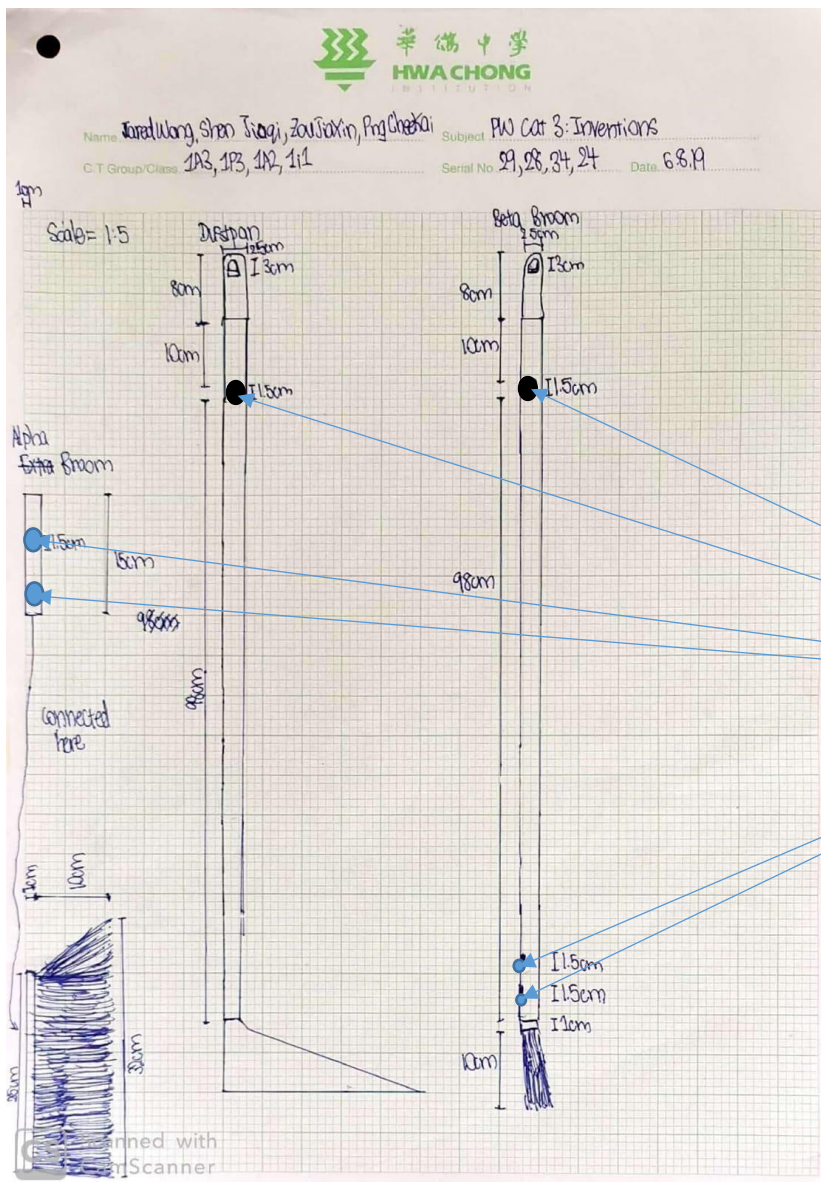 華僑中學
HWA CHONG
INSTITUTION
Name Jared Wong, Shen Jiaqi, Zou JiaXin, Png CheeKai Subject PW Cat 3: Inventions
CT Group/Class 1A3, 1P3, 1A2, 1i1 Serial No. 29, 28, 34, 24 Date 6.8.19
1cm
Scale= 1:5
Dustpan
2.5cm
I 3cm
8cm
10cm
I1.5cm
98cm
Beta Broom
2.5cm
I3cm
8cm
10cm
I1.5cm
98cm
I1.5cm
I1.5cm
I1cm
10cm
Alpha
Broom
I1.5cm
15cm
connected
here
10cm
30cm
Scanned with
CamScanner